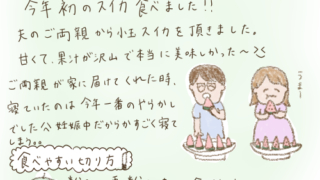 今年初のスイカ食べました!!
夫のご両親から小玉スイカを頂きました。
甘くて、果汁が沢山で本当に美味しかった〜
ご両親が家に届けてくれた時、
寝ていたのは今年一番のやらかし
でした 妊娠中だからかすごく寝て
しまう
うまー
食べやすい切り方